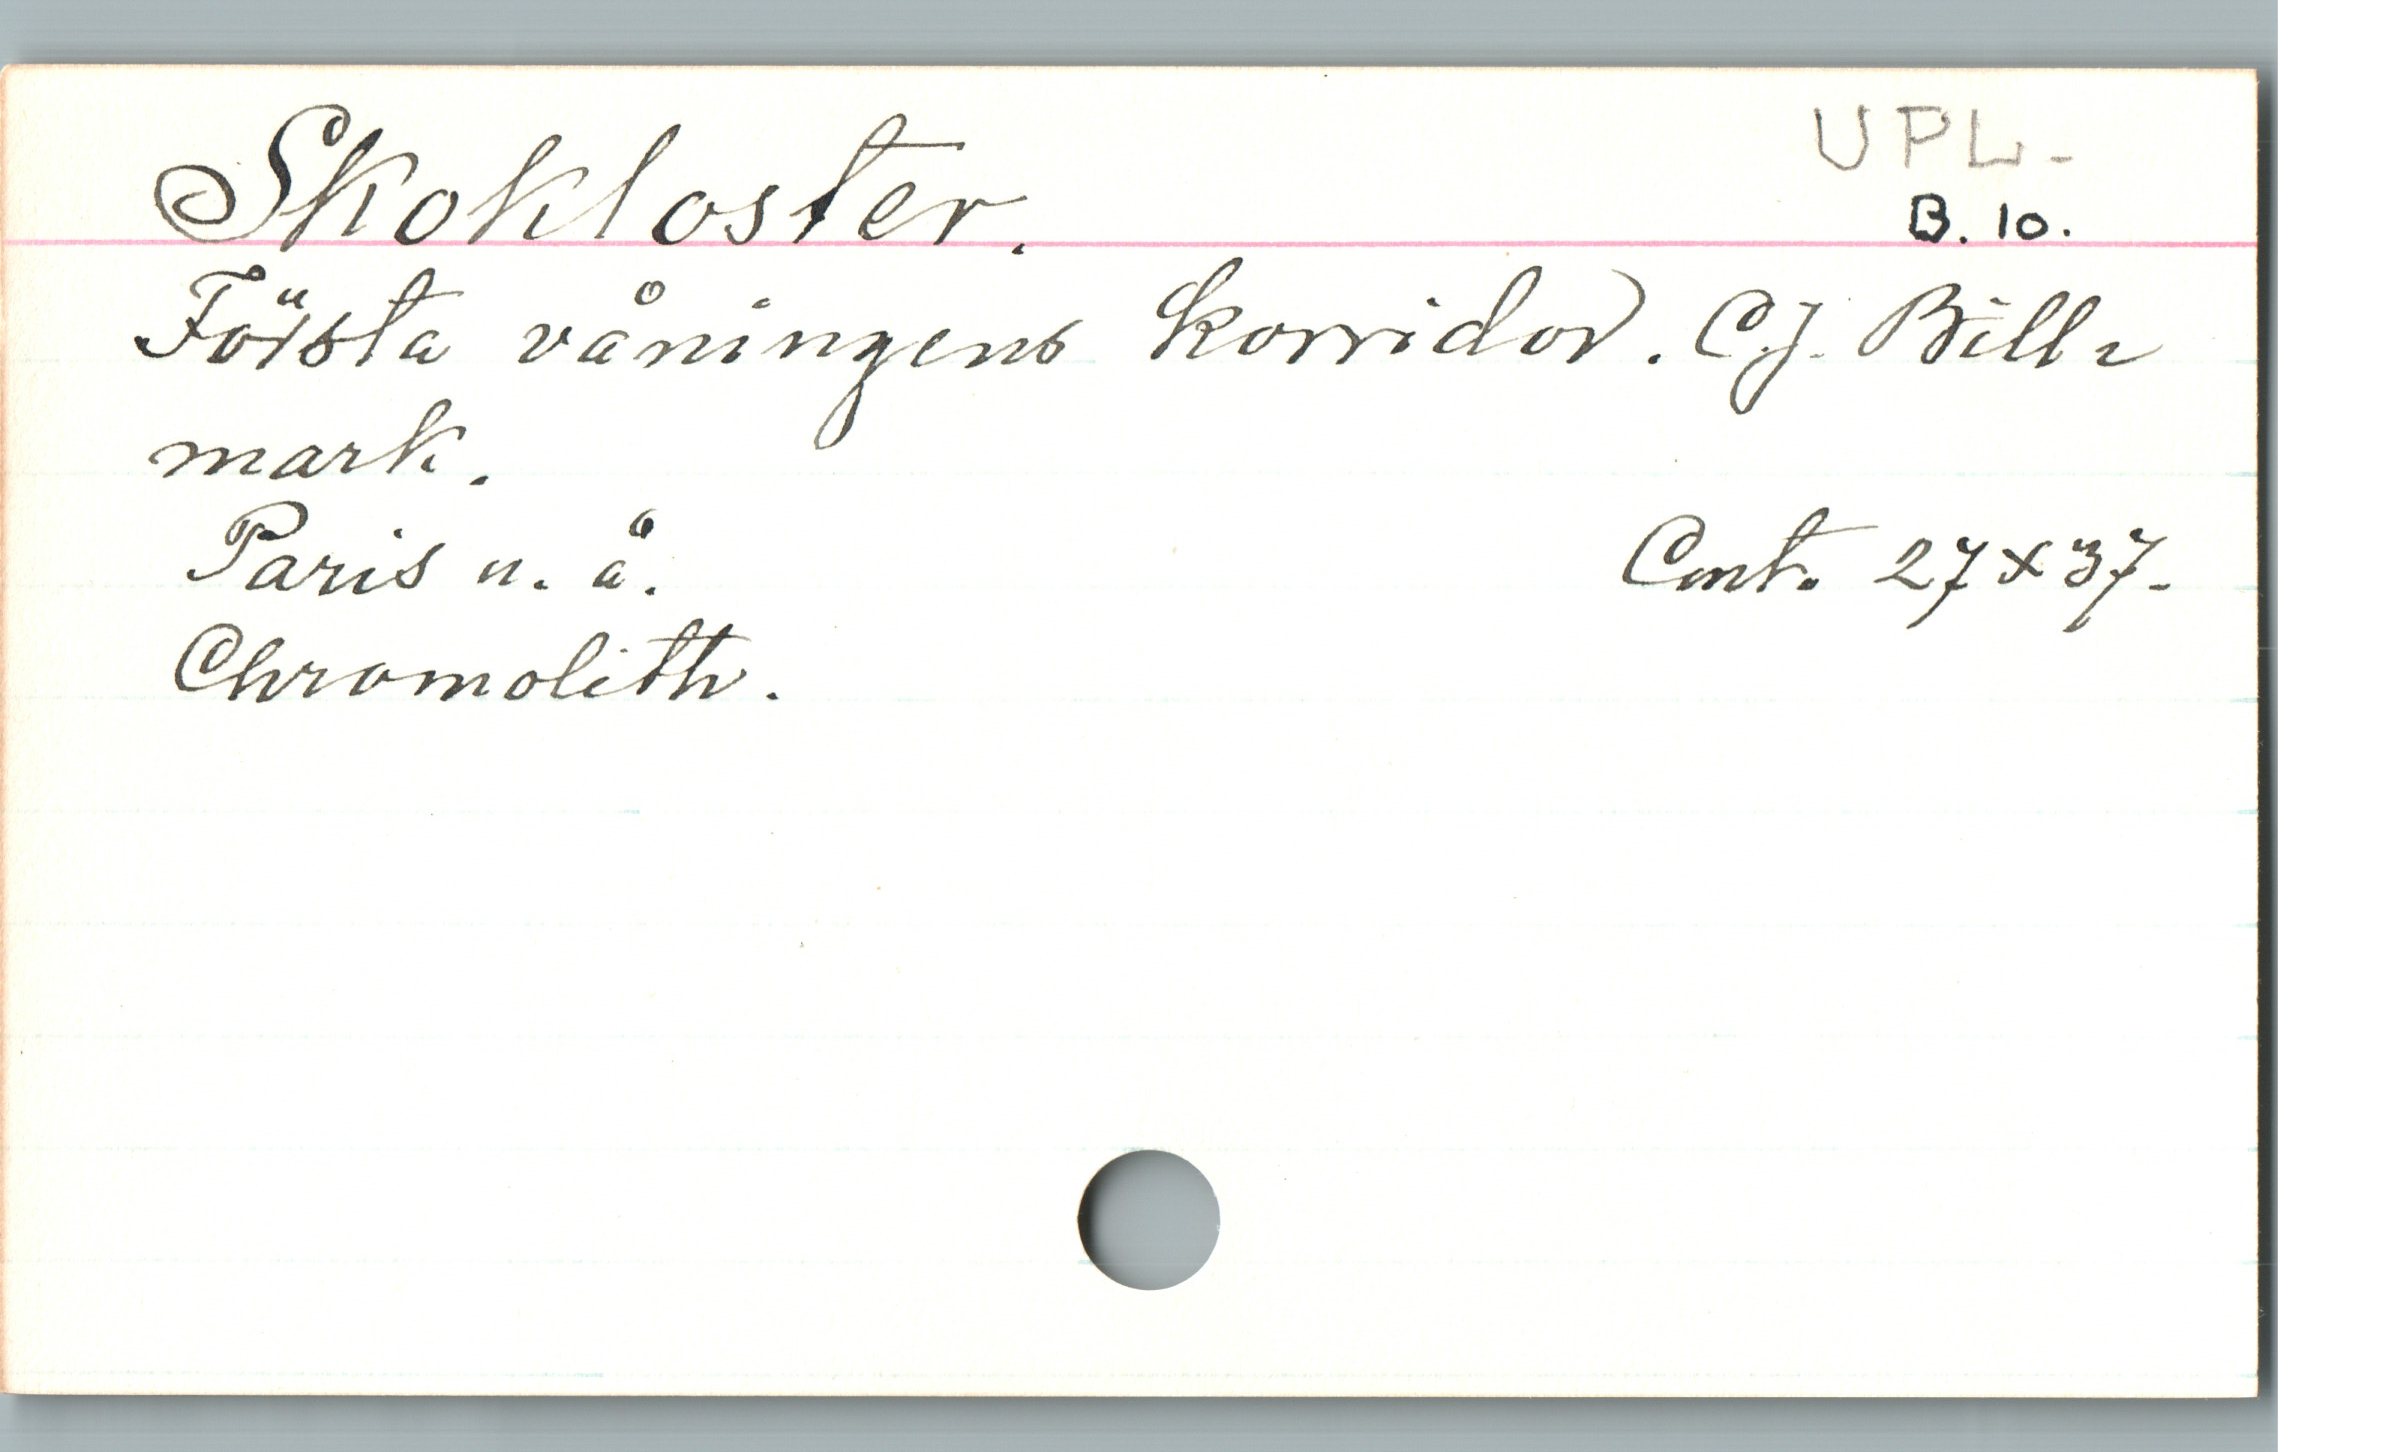 Skokloster.
UPL-
B. 10.
Första våningens korridor. C.J. Bill-
mark.
Paris u. å.
Cmt. 27 x 37.
Chromolith.